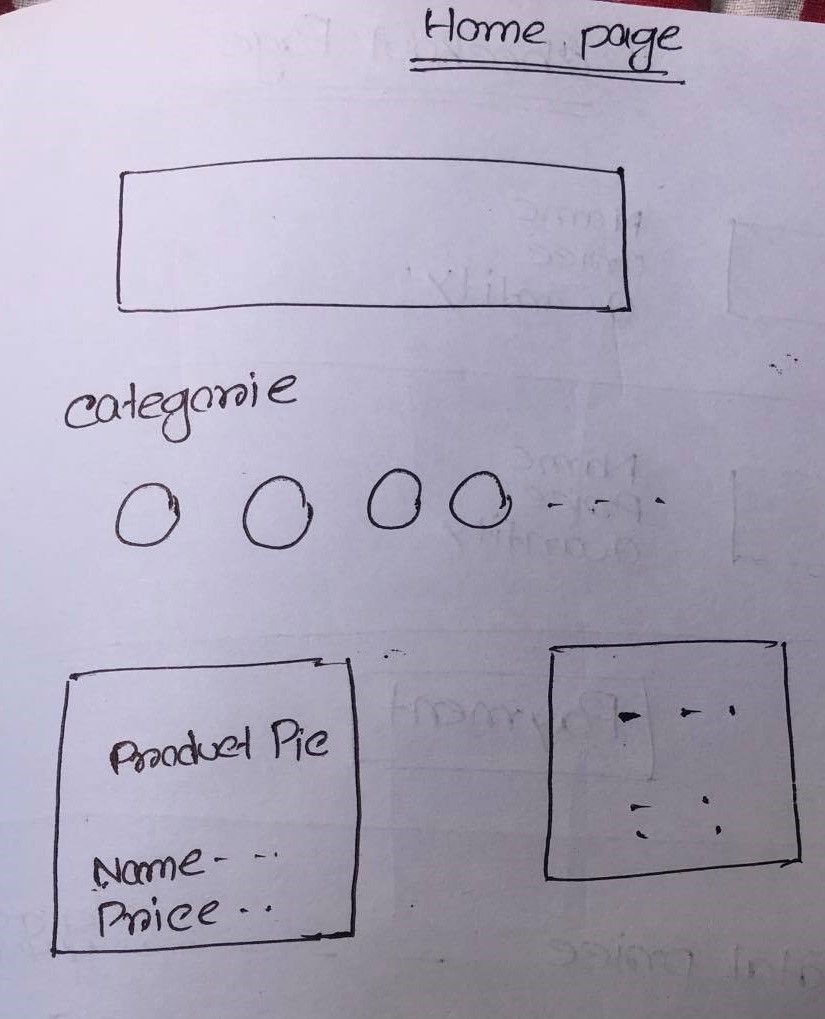 Home page
categorie
Product Pic
Name - - -
Price - -